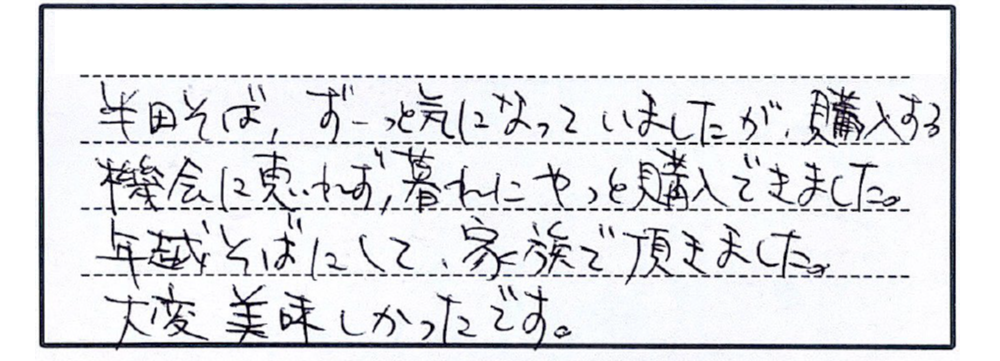 半田そば、ずーっと気になっていましたが、購入する
機会に恵れず、暮れにやっと購入できました。
年越そばにして、家族で頂きました。
大変美味しかったです。